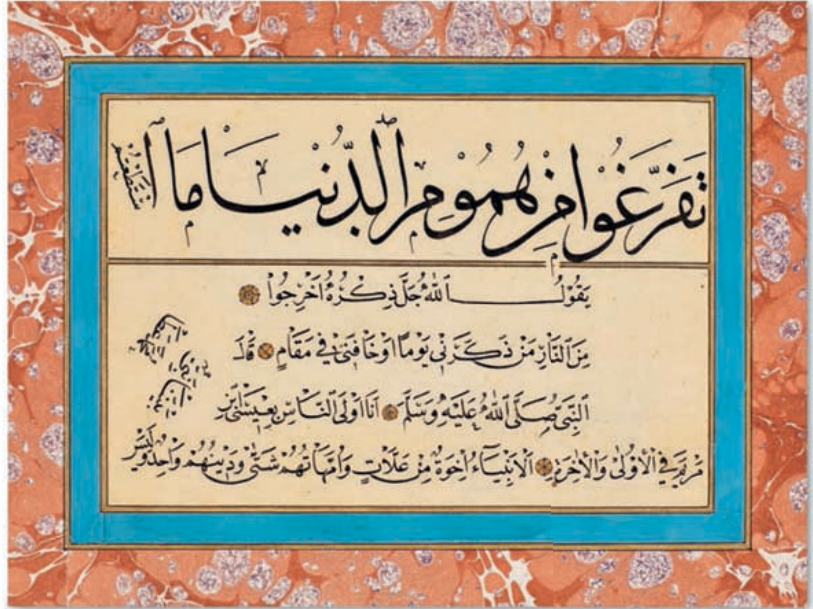 تَفَرَّغُوا مِنْ هُمُومِ الدُّنْيَا مَا اسْتَطَعْتُمْ
يَقُولُ اللهُ جَلَّ ذِكْرُهُ اَخْرِجُوا
مِنَ النَّارِ مَنْ ذَكَرَنِي يَوْمًا اَوْ خَافَنِي فِي مَقَامٍ قَالَ
النَّبِيُّ صَلَّى اللهُ عَلَيْهِ وَسَلَّمَ اَنَا اَوْلَى النَّاسِ بِعِيسَى ابْنِ
مَرْيَمَ فِي الْاُولَى وَالْاٰخِرَةِ الْاَنْبِيَاءُ اِخْوَةٌ مِنْ عَلَّاتٍ وَاُمَّهَاتُهُمْ شَتَّى وَدِينُهُمْ وَاحِدٌ وَلَيْسَ
بَيْنِي وَبَيْنَ